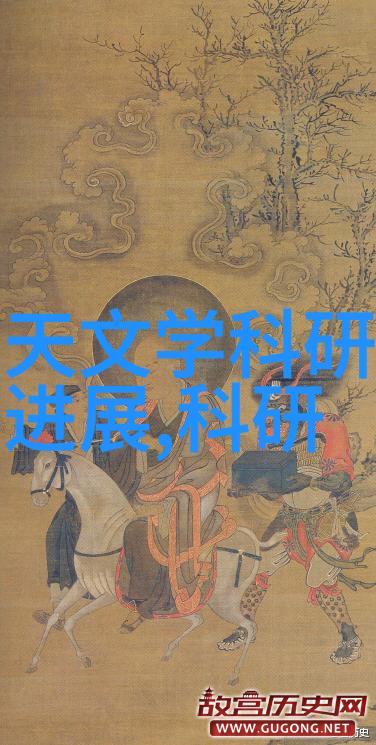 天文学科研
进展,科研
故宫历史网
WWW.GUGONG.NET
历史